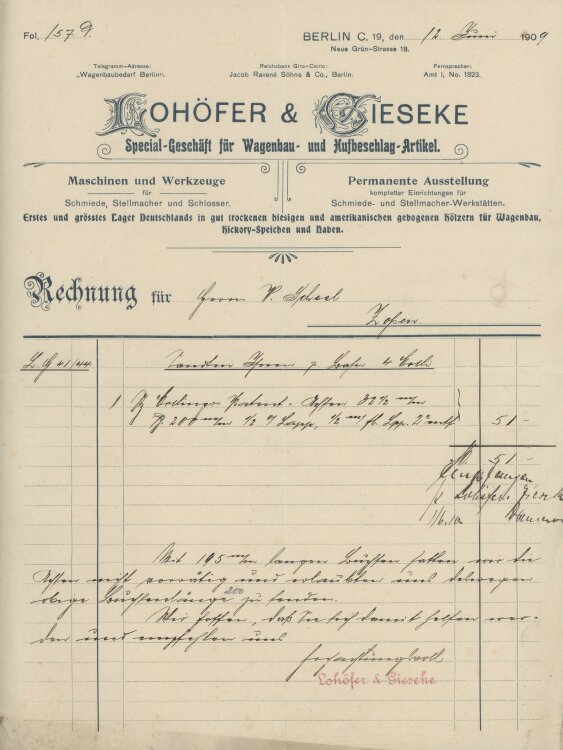 Fol. 1579.
BERLIN C. 19, den 12 Juni 1909
Neue Grün-Strasse 18.
Telegramm-Adresse: Reichsbank Giro-Conto: Fernsprecher:
„Wagenbaubedarf Berlin“. Jacob Ravené Söhne & Co., Berlin. Amt I, No. 1823.
LOHÖFER & GIESEKE
Special-Geschäft für Wagenbau- und Hufbeschlag-Artikel.
Maschinen und Werkzeuge
für
Schmiede, Stellmacher und Schlosser.
Permanente Ausstellung
kompletter Einrichtungen für
Schmiede- und Stellmacher-Werkstätten.
Erstes und grösstes Lager Deutschlands in gut trockenen hiesigen und amerikanischen gebogenen Hölzern für Wagenbau,
Hickory-Speichen und Naben.
Rechnung für Herrn
Zossen.
L. G 41/44 Sandten Ihnen p. Bahn 4 Colli
1 Collings Patent-Achsen 32½ m/m
200 m/m 51 -
M. 51 -
Mit 195 m/m langen Buchsen hatten wir die
Achsen nicht vorrätig und erlaubten uns deswegen
obige Buchsenlänge 200 zu senden.
Wir hoffen, daß Sie sich damit helfen wer-
den und empfehlen uns
hochachtungsvoll
Lohöfer & Gieseke.